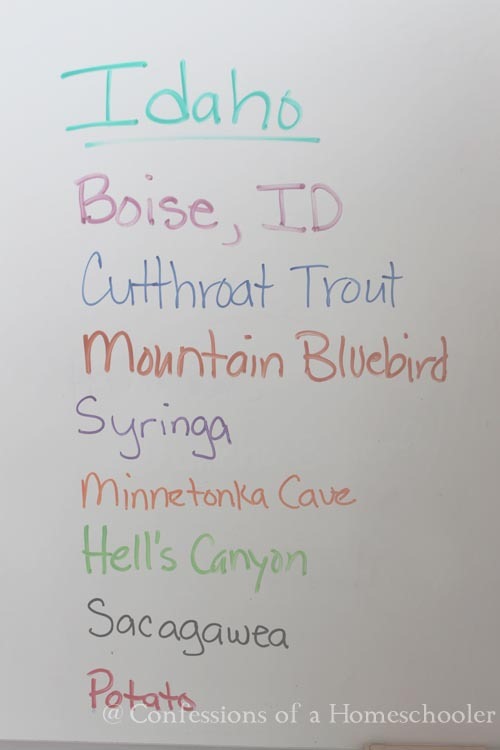 Idaho
Boise, ID
Cutthroat Trout
Mountain Bluebird
Syringa
Minnetonka Cave
Hell's Canyon
Sacagawea
Potato
@ Confessions of a Homeschooler